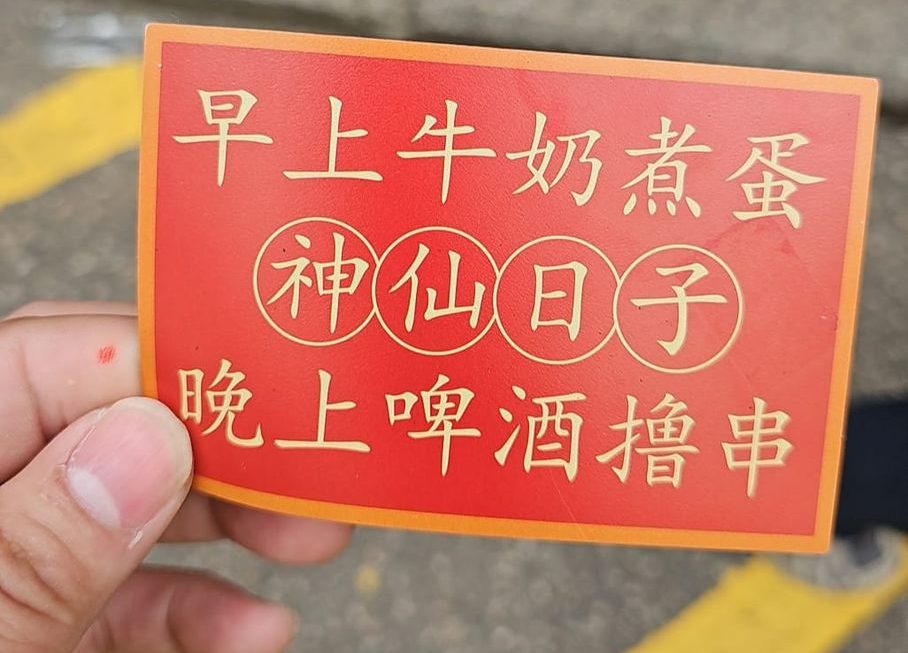 早上牛奶煮蛋
神仙日子
晚上啤酒撸串